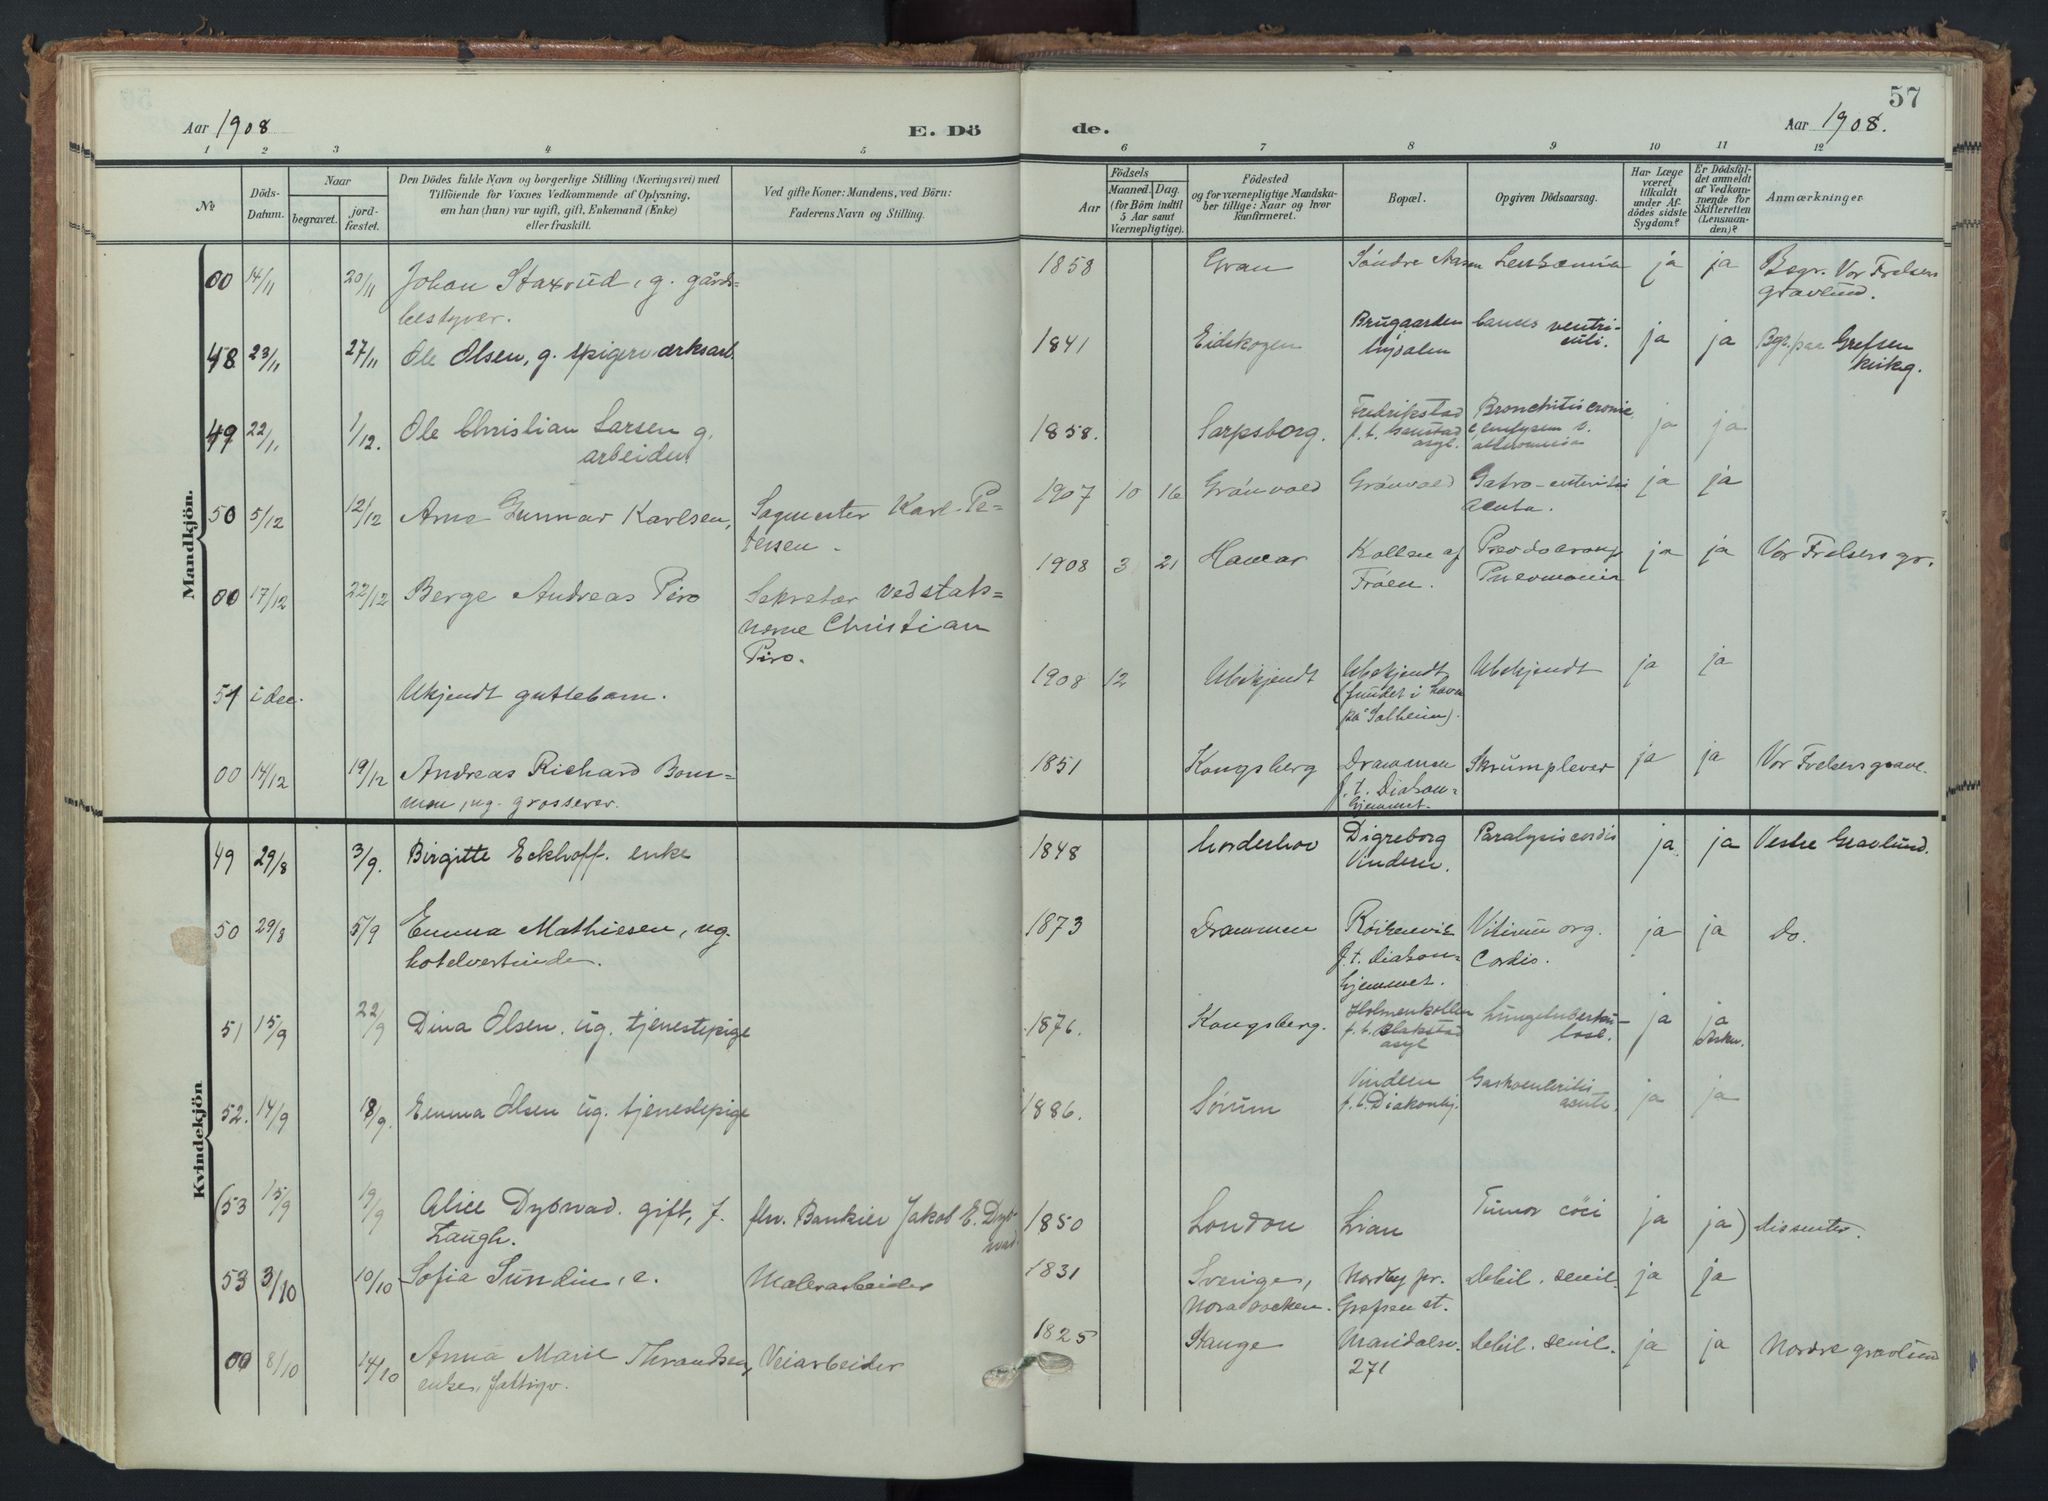 57
Aar 1908
E. Dö
de.
Aar 1908.
1 2 3 4 5 6 7 8 9 10 11 12
No
Döds-
Datum.
Naar
begravet.
jord-
fæstet.
Den Dödes fulde Navn og borgerlige Stilling (Næringsvei) med
Tilföiende for Voxnes Vedkommende af Oplysning,
om han (hun) var ugift, gift, Enkemand (Enke)
eller fraskilt.
Ved gifte Koner: Mandens, ved Börn:
Faderens Navn og Stilling.
Födsels
Aar
Maaned. Dag.
(for Börn indtil
5 Aar samt
Værnepligtige).
Födested
og for værnepligtige Mandska-
ber tillige: Naar og hvor
Konfirmeret.
Bopæl.
Opgiven Dödsaarsag.
Har Læge
været
tilkaldt
under Af-
dödes sidste
Sygdom?
Er Dödsfal-
det anmeldt
af Vedkom-
mende for
Skifteretten
(Lensman-
den)?
Anmærkninger
Mandkjön.
00 14/11 20/11 Johan Staxrud, g. gårds-
bestyrer.
1858 Gran Söndre Aasen Leukæmia ja ja Begr. Vor Frelsers
gravlund.
48 23/11 27/11 Ole Olsen, g. spigerværksarb.
1841 Eidskogen Brugaarden
Nydalen
cancer ventri-
culi.
ja ja Bgr. paa Grefsen
kirkeg.
49 22/1, 1/12. Ole Christian Larsen g.
arbeider
1858. Sarpsborg. Fredrikstad
f. t. Gaustad
asyl.
Bronchitis cronic
& emfysem s.
ja ja
50 5/12 12/12 Arne Gunnar Karlsen, Sagmester Karl Pe-
tersen.
1907 10 16 Grönvold Grönvold Gatro-enteritis
acuta.
ja ja
00 17/12 22/12 Berge Andreas Piro Sekretær ved stats-
Christian
Piro.
1908 3 21 Hamar Kollen af
Fröen.
Pneomonia
ja ja Vor Frelsers gr.
51 i dec. Ukjendt guttebarn.
1908 12 Ubekjendt Ubekjendt
(fundet i
på Solheim).
Ubekjendt ja ja
00 14/12 19/12 Andreas Richard Bom-
man, ug. grosserer.
1851 Kongsberg Drammen
f. t. Diakon-
hjemmet.
Skrumplever ja ja Vor Frelsers grave.
Kvindekjön
49 29/8 3/9. Birgitte Eckhoff. enke
1848 Norderhov Digreborg
Vindern.
Paralysis cordis ja ja Vestre Gravlund.
50 29/8 5/9 Emma Mathiesen, ug.
hotelvertinde.
1873 Drammen Röikenvik
f. t. diakon-
hjemmet.
Vitium org.
Cordis.
ja ja do.
51 15/9 22/9 Dina Olsen. ug. tjenestepige
1876. Kongsberg. Holmenkollen
f. t. Blakstad
asyl
Lungetuberku-
lose.
ja ja
52. 14/9 18/9. Emma Olsen ug. tjenestepige
1886. Sörum Vindern
f. t. Diakonhj.
Gastroenteritis
acuta.
ja ja
(53 15/9 19/9 Alice Dybwad. gift, f.
Laugh.
fhv. Bankier Jakob E. Dyb-
wad.
1850 London Lian Tumor cöci ja ja) dissenter.
53 3/10 10/10 Sofia Sundin, e. Malerarbeider
1831 Sverige,
Nora socken.
Nordby pr.
Grefsen st.
Debil. senil. ja ja
00 8/10 14/10 Anna Marie Thrandsen, Veiarbeider
enke, fattigv.
1825 Stange Maridalsv.
271
Debil. senil. ja ja Nordre gravlund